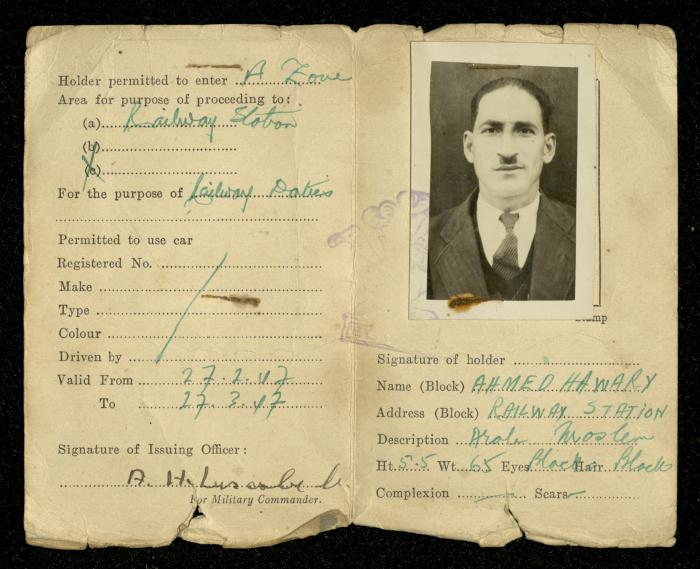 Holder permitted to enter A Zone
Area for purpose of proceeding to:
(a) Railway Station
(b)
(c)
For the purpose of Railway Duties
Permitted to use car
Registered No.
Make
Type
Colour
Driven by
Valid From 27.2.47
To 27.3.47
Signature of Issuing Officer:
A. H.
For Military Commander.
Signature of holder
Name (Block) AHMED HAWARY
Address (Block) RAILWAY STATION
Description Arab Moslem
Ht. 5.5 Wt. 65 Eyes Black Hair Black
Complexion Scars